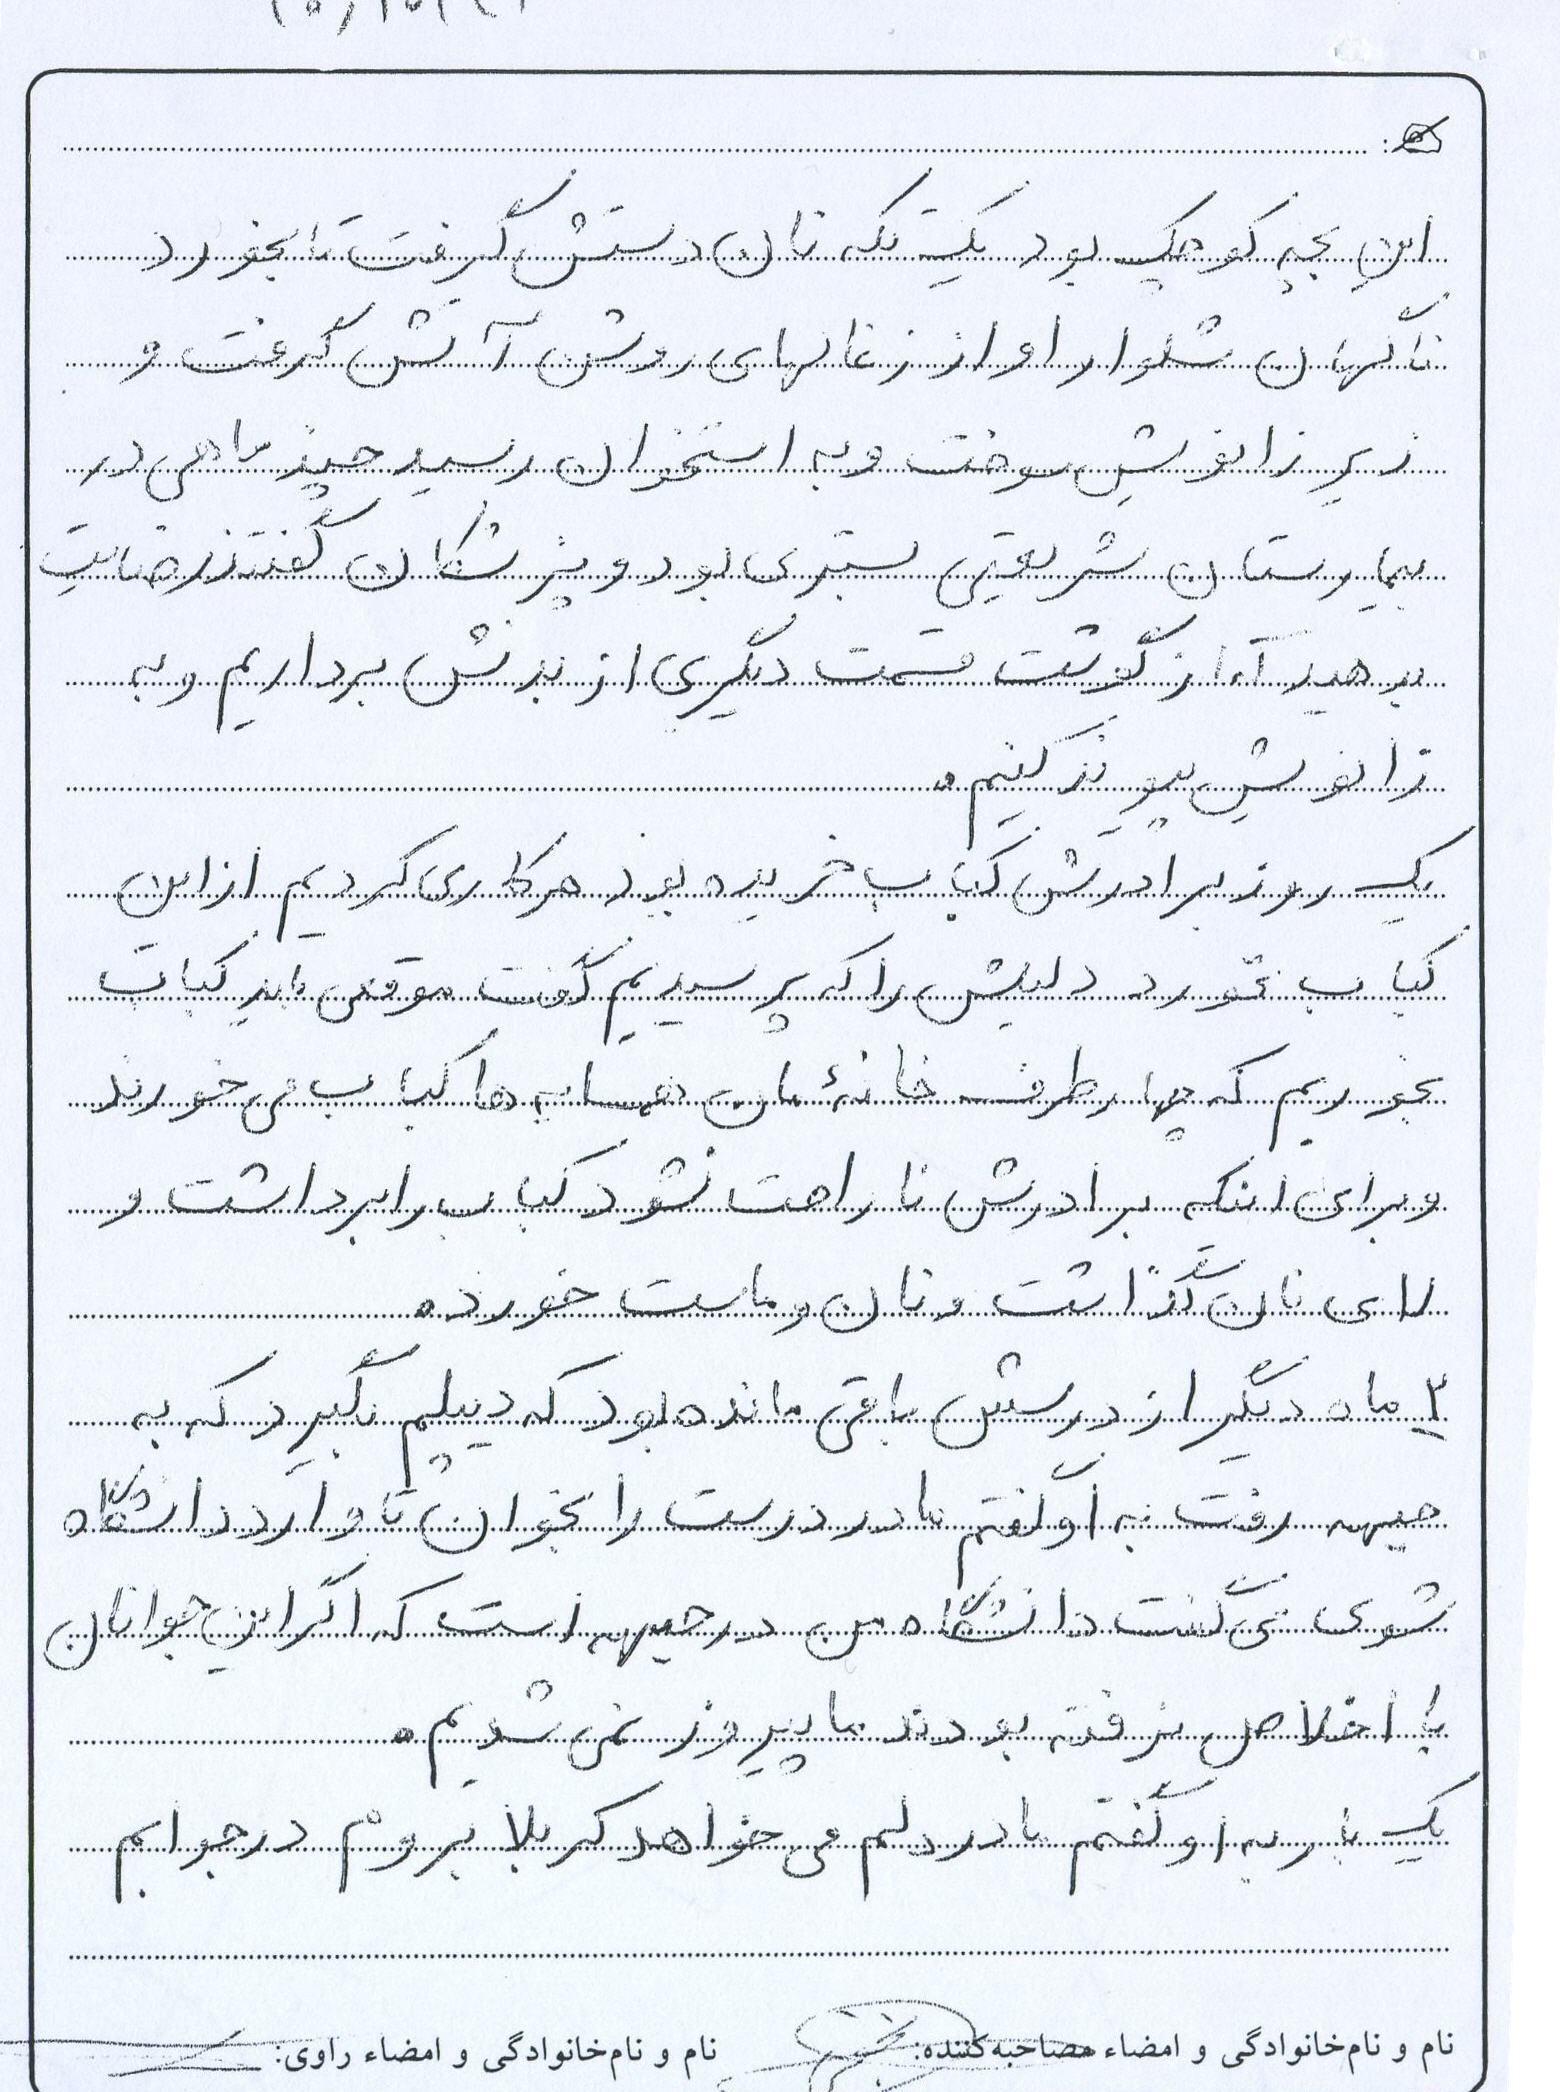 این بچه کوچک بود یک تکه نان دستش گرفت تا بخورد
ناگهان شلوار او از زغالهای روشن آتش گرفت و
زیر زانویش سوخت و به استخوان رسید چند ماهی در
بیمارستان شریعتی بستری بود و پزشکان گفتند رضایت
بدهید تا از گوشت قسمت دیگری از بدنش برداریم و به
زانویش پیوند کنیم.
یک روز برادرش کباب خریده بود هرکاری کردیم از این
کباب نخورد دلیلش را که پرسیدیم گفت موقعی باید کباب
بخوریم که چهار طرف خانهٔ مان همسایه ها کباب می خورند
و برای اینکه برادرش ناراحت نشود کباب را برداشت و
لای نان گذاشت و نان و ماست خورد.
۲ ماه دیگر از درسش باقی مانده بود که دیپلم بگیرد که به
جبهه رفت به او گفتم مادر درست را بخوان تا وارد دانشگاه
شوی می گفت دانشگاه من در جبهه است که اگر این جوانان
با اخلاص نرفته بودند ما پیروز نمی شدیم.
یک بار به او گفتم مادر دلم می خواهد کربلا بروم در جوابم
نام و نام‌خانوادگی و امضاء مصاحبه‌کننده: نام و نام‌خانوادگی و امضاء راوی: